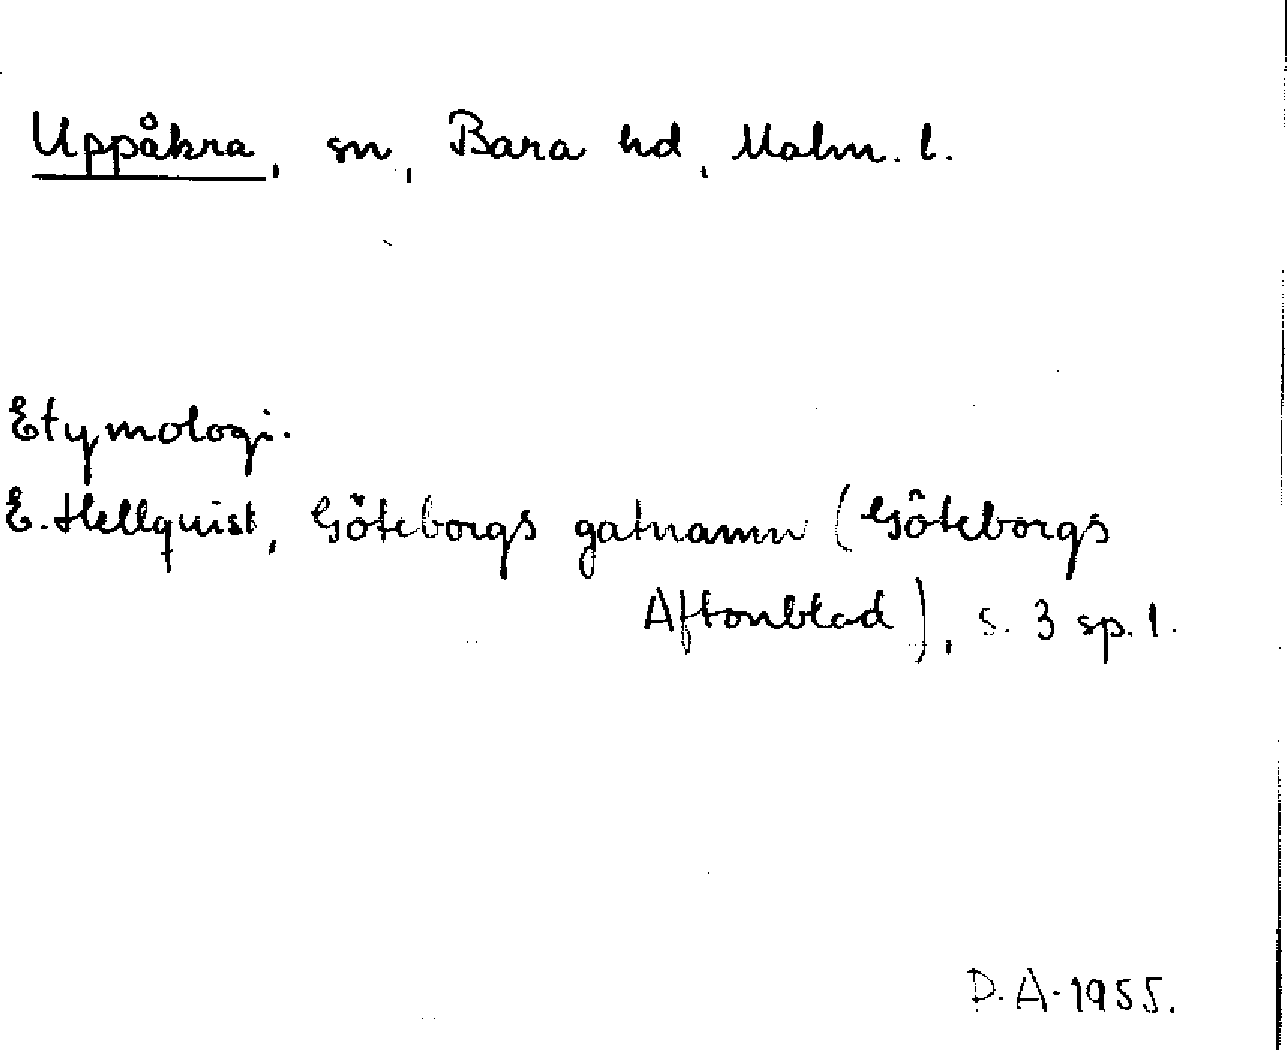 Uppåkra, sn, Bara hd, Malm. l.
Etymologi.
E. Hellquist, Göteborgs gatnamn (Göteborgs
Aftonblad), s. 3 sp. 1.
D. A. 1955.